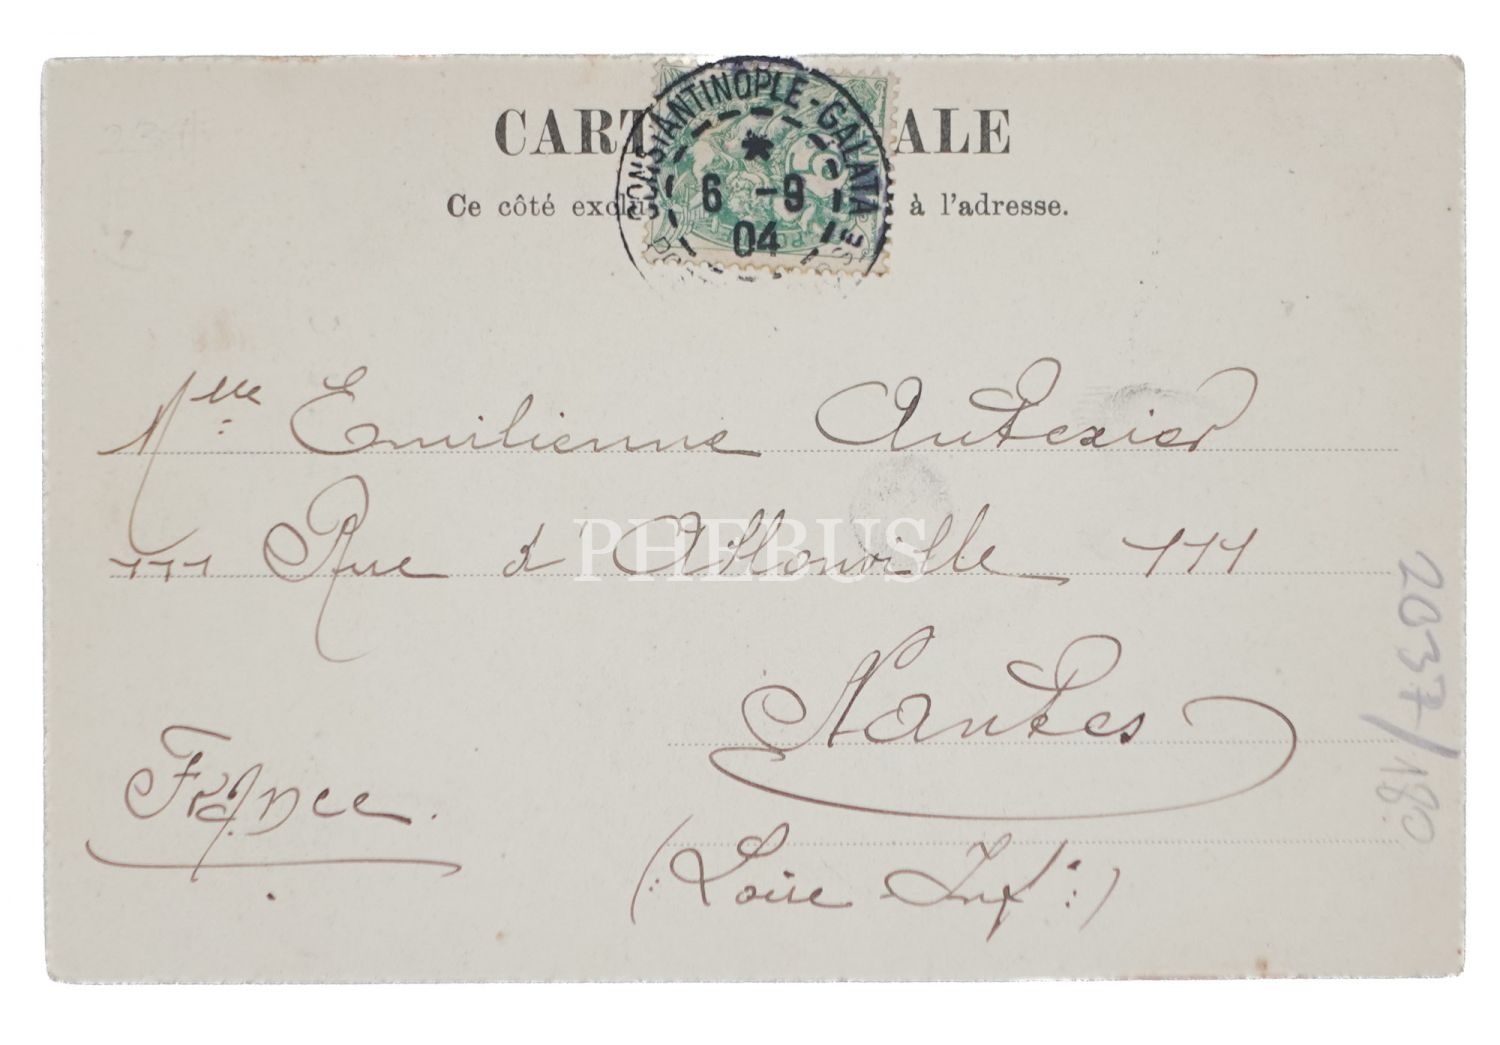 CART ALE
Ce côté exclu à l'adresse.
CONSTANTINOPLE-GALATA
6 -9
04
POS
Mlle Emilienne Autexier
111 Rue d'Allonville 111
Nantes
France.
(Loire Inf:)
2037/180
PHEBUS